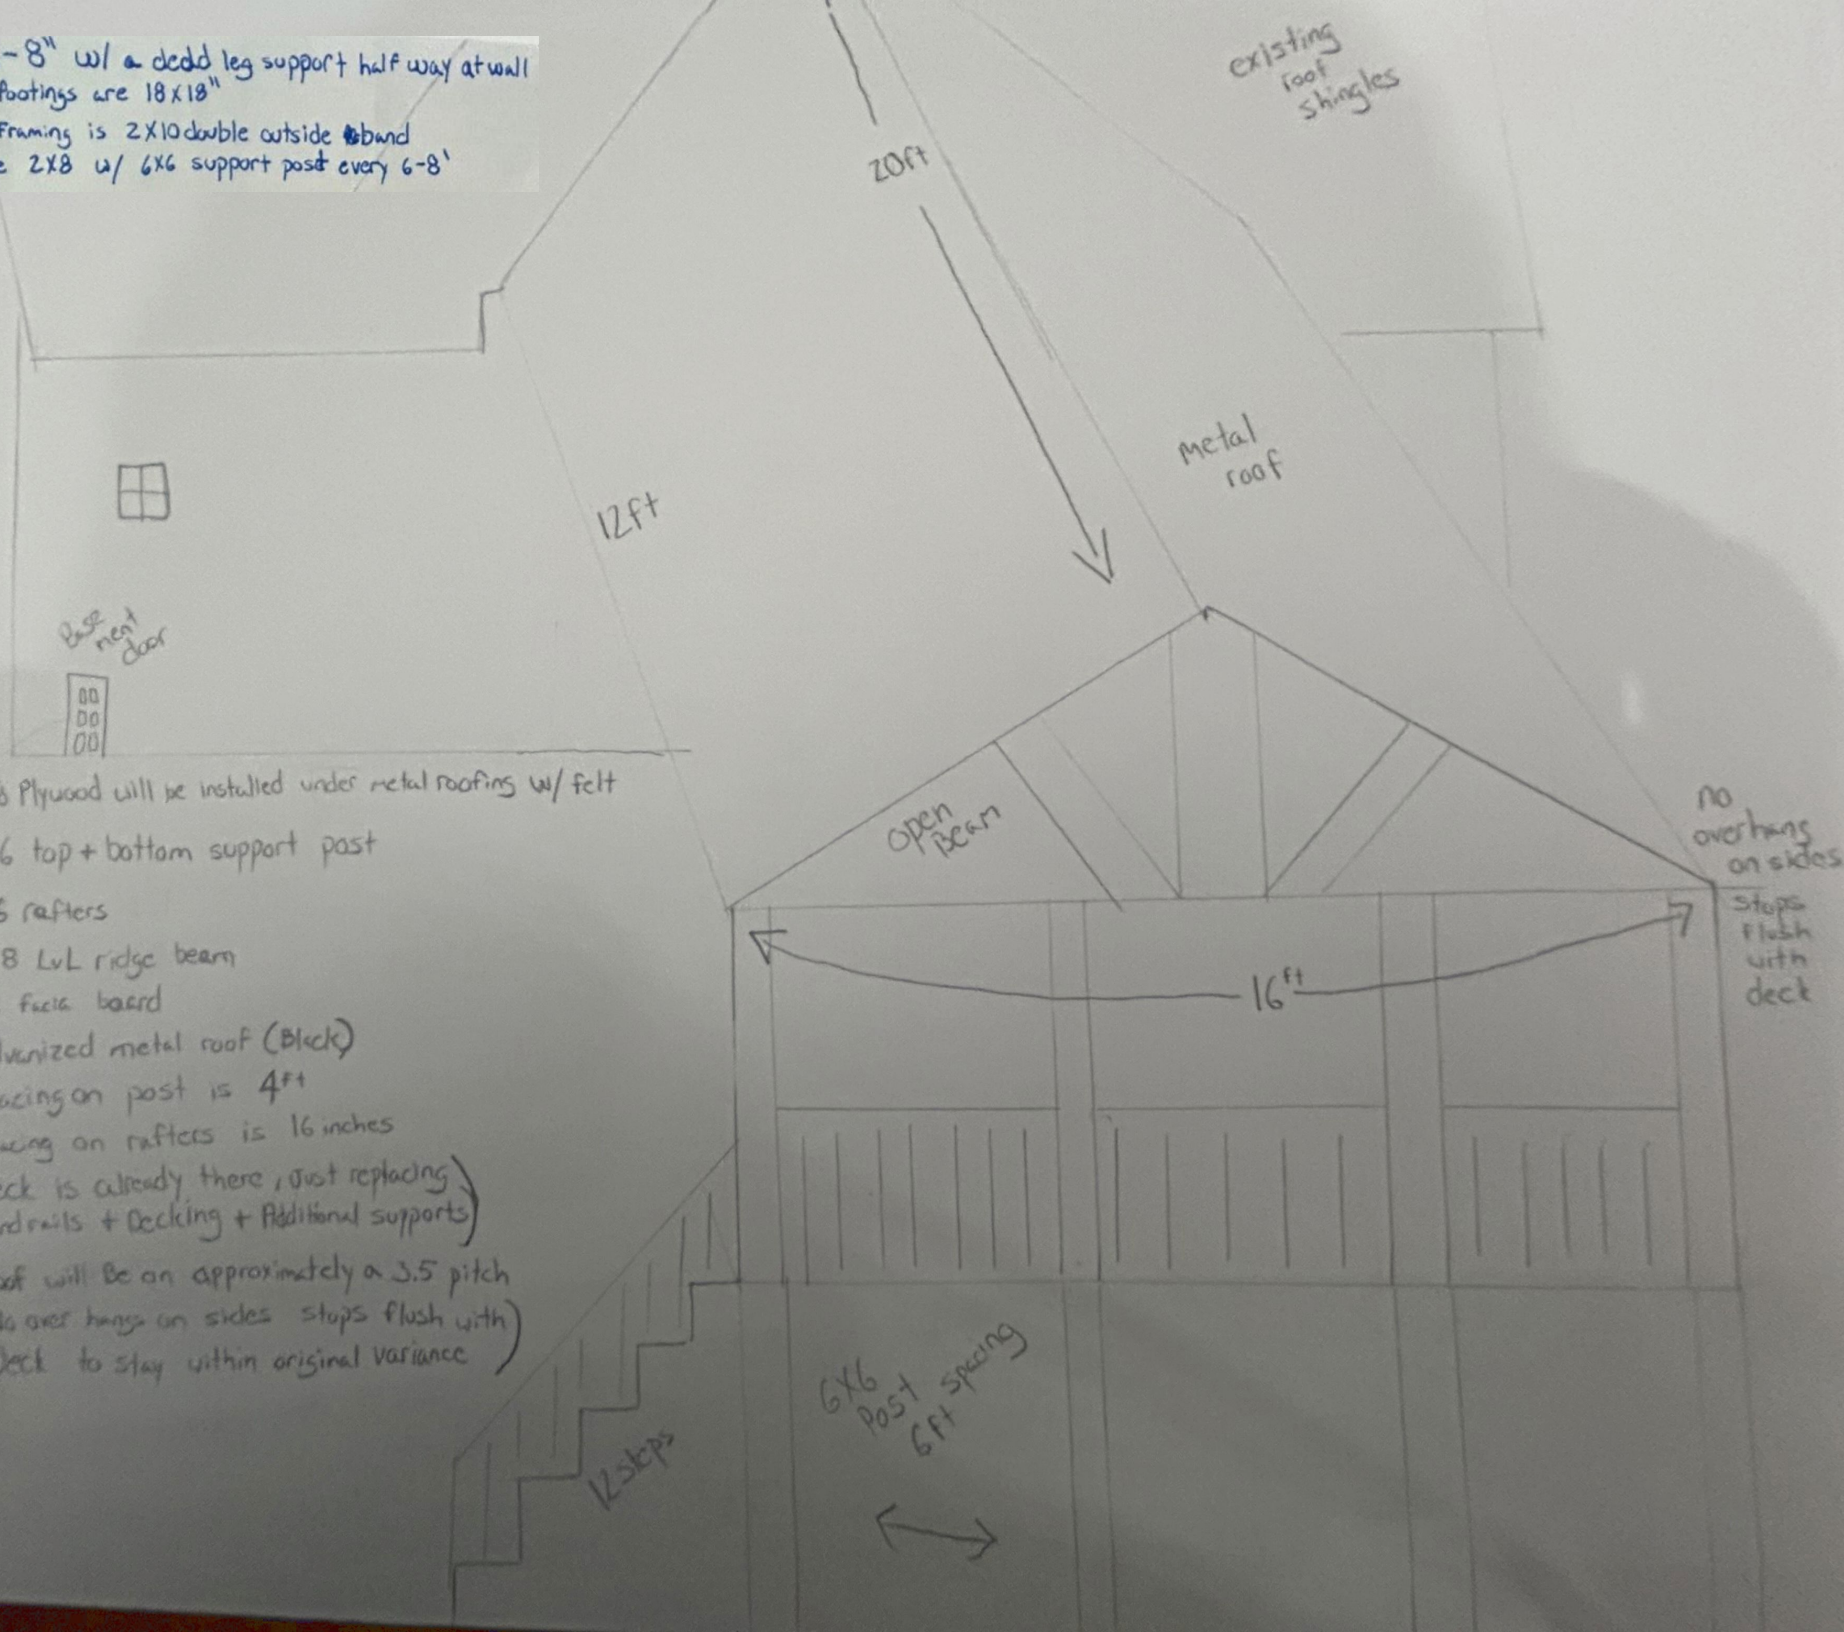 -8" w/ a dedd leg support half way at wall
Footings are 18x18"
Framing is 2x10 double outside band
2x8 w/ 6x6 support post every 6-8'
existing
roof
shingles
20ft
metal
roof
12ft
Base
ment
door
Plywood will be installed under metal roofing w/ felt
6 top + bottom support post
rafters
8 LvL ridge beam
facia board
lvanized metal roof (Black)
acing on post is 4ft
acing on rafters is 16 inches
eck is already there, Just replacing)
ndrails + Decking + Additional supports)
oof will Be an approximately a 3.5 pitch
over hangs on sides stops flush with)
Deck to stay within original variance)
open
Beam
no
overhang
on sides
stops
flush
with
deck
16ft
6x6
Post spacing
6ft
12 steps